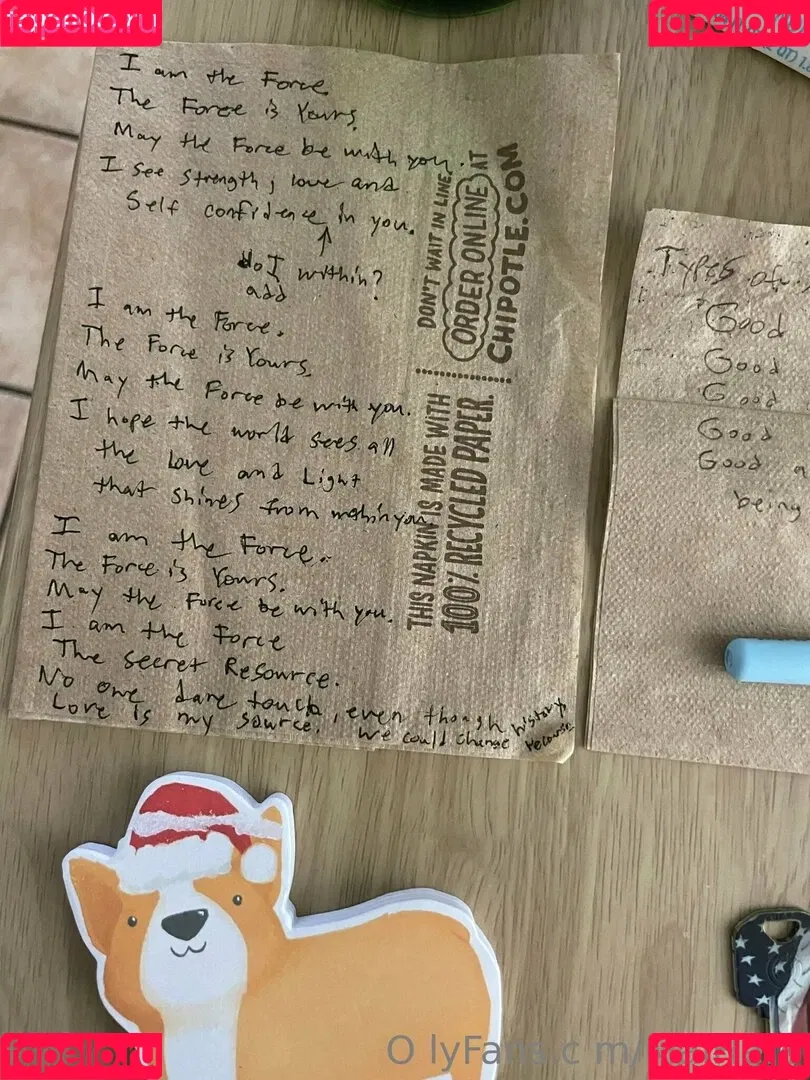 fapello.ru
fapello.ru
I am the Force.
The Force is Yours.
May the Force be with you.
I see strength, love and
self confidence in you.
do I within?
add
I am the Force.
The Force is Yours.
May the Force be with you.
I hope the world sees all
the love and Light
that shines from within you.
I am the Force.
The Force is Yours.
May the Force be with you.
I am the Force
The secret Resource.
No one dare touch, even though
Love is my source. We could change history
DON'T WAIT IN LINE,
ORDER ONLINE AT
CHIPOTLE.COM
THIS NAPKIN IS MADE WITH
100% RECYCLED PAPER.
Types of
Good
Good
Good
Good
Good a
being
fapello.ru
fapello.ru